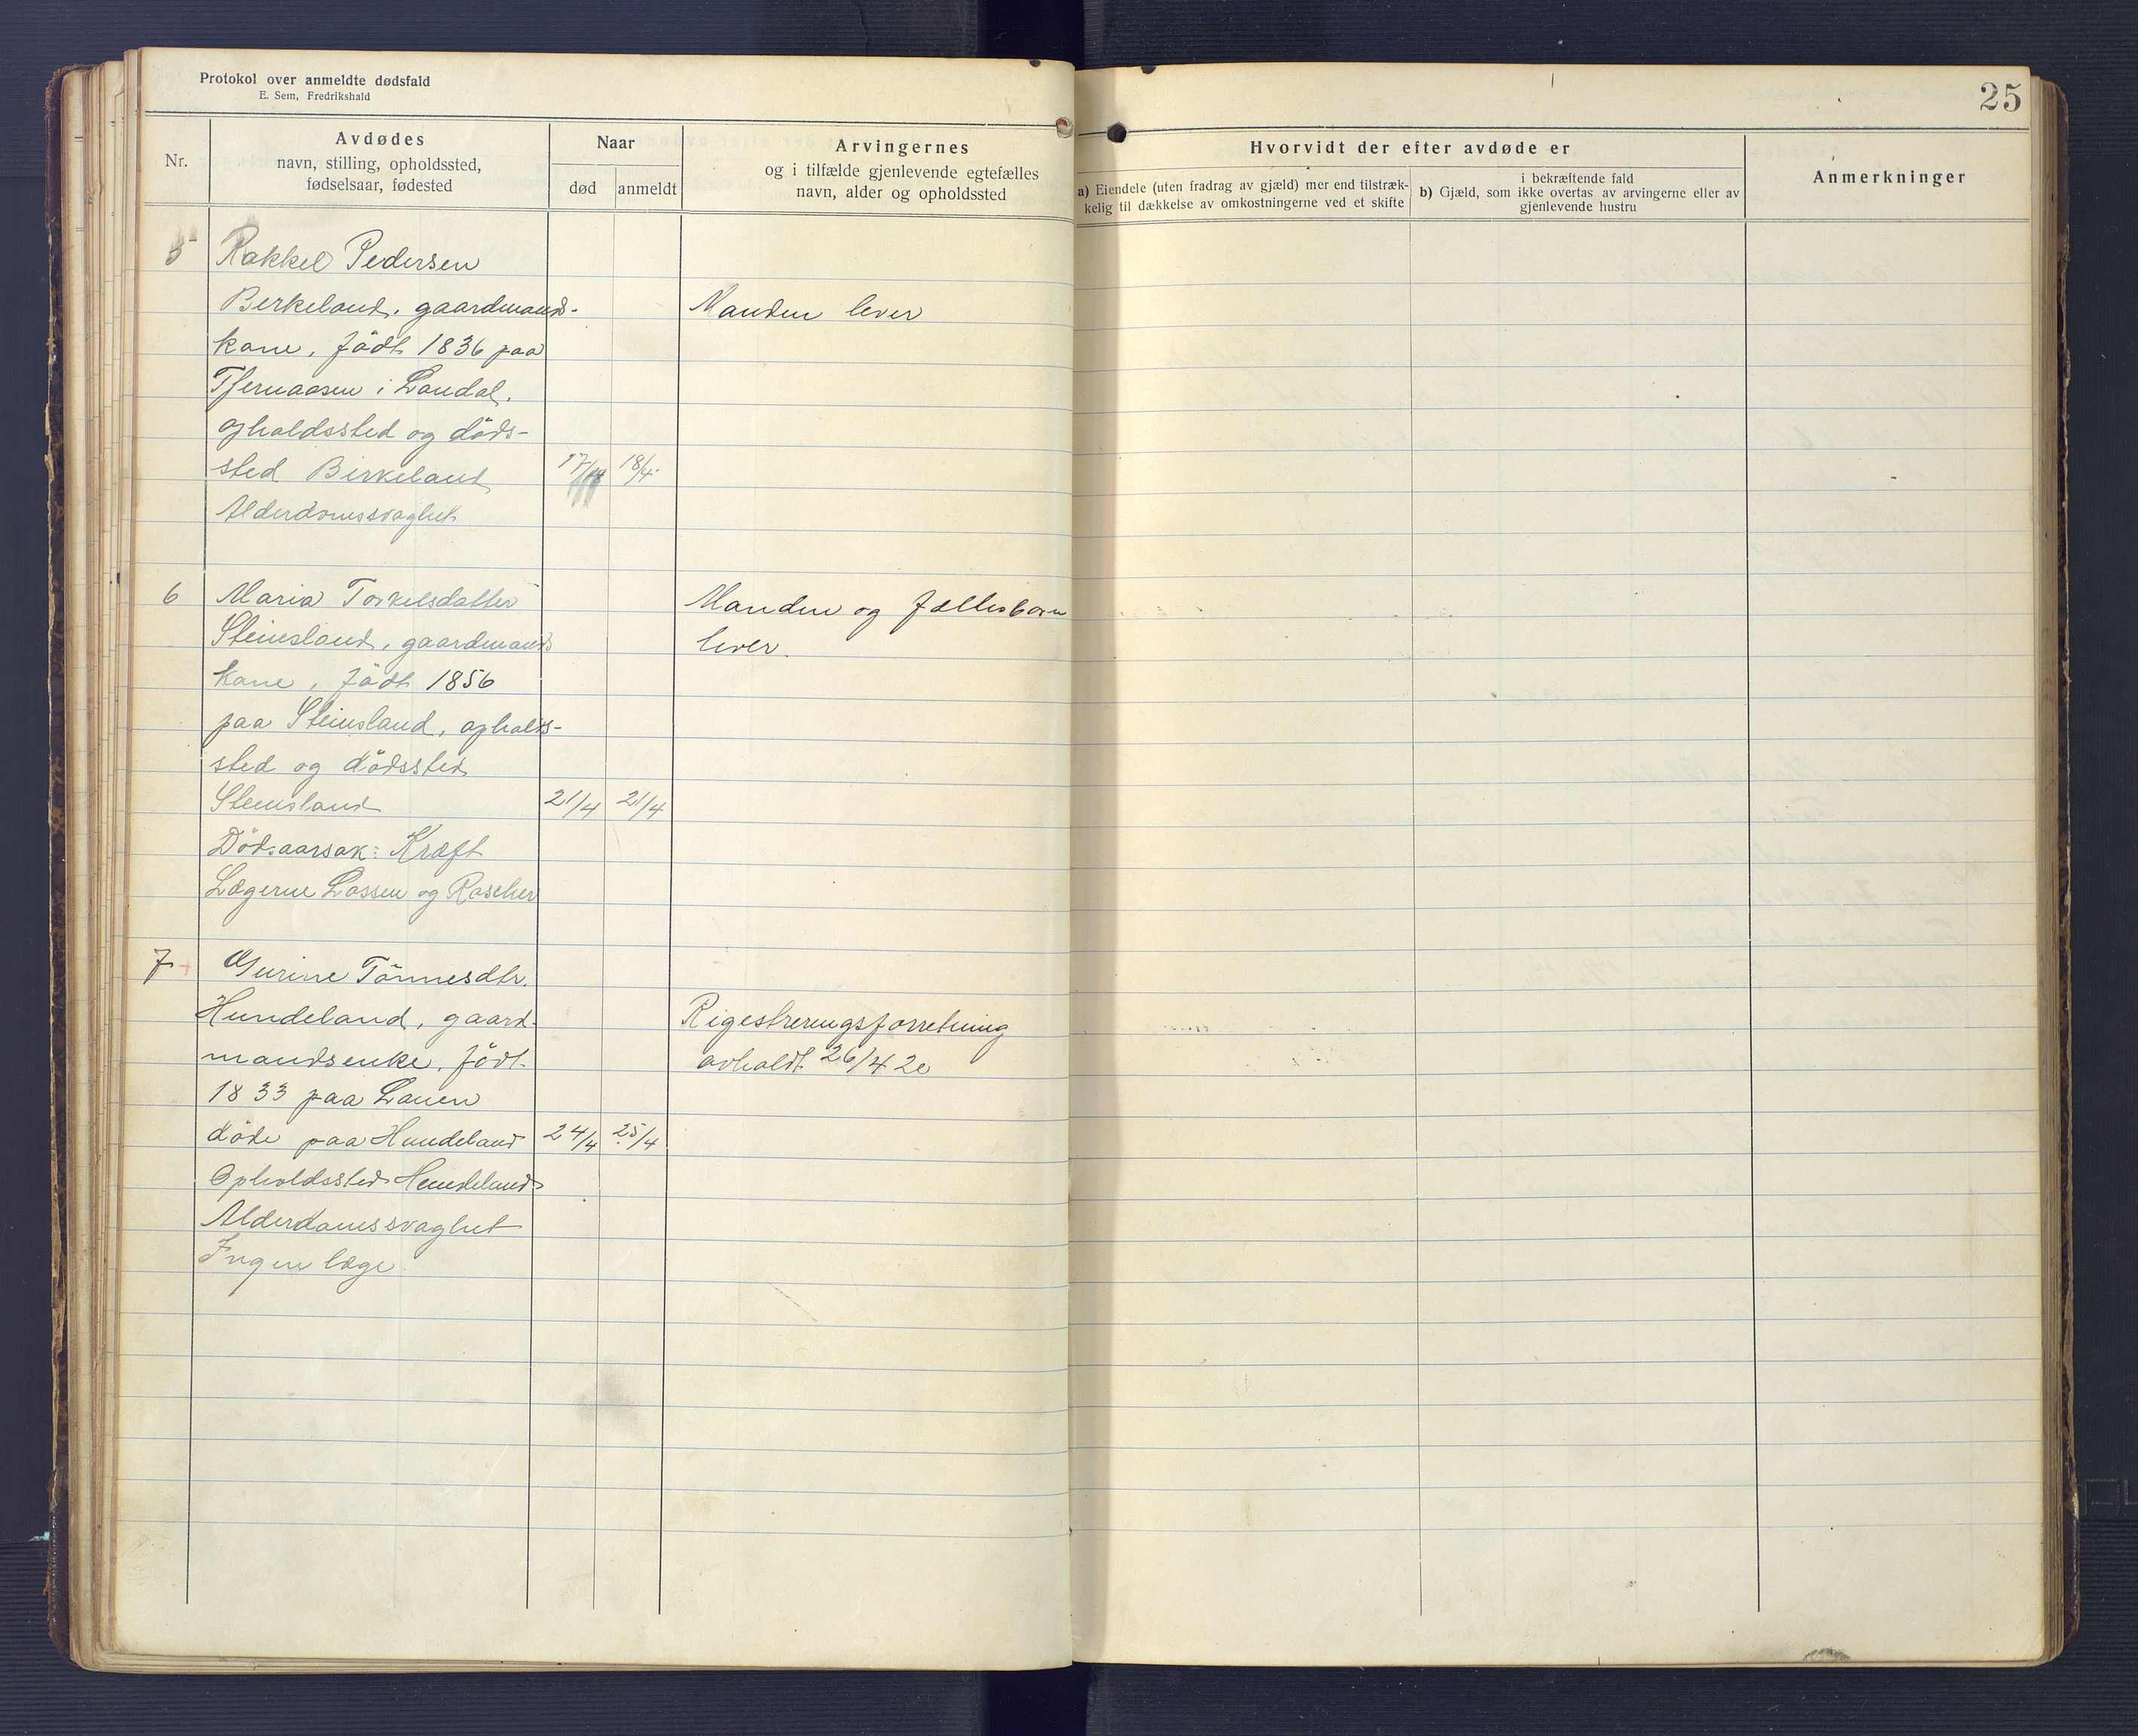 Protokol over anmeldte dødsfald
E. Sem, Fredrikshald
25
Nr.
Avdødes
navn, stilling, opholdssted,
fødselsaar, fødested
Naar
død
anmeldt
Arvingernes
og i tilfælde gjenlevende egtefælles
navn, alder og opholdssted
Hvorvidt der efter avdøde er
a) Eiendele (uten fradrag av gjæld) mer end tilstræk-
kelig til dækkelse av omkostningerne ved et skifte
i bekræftende fald
b) Gjæld, som ikke overtas av arvingerne eller av
gjenlevende hustru
Anmerkninger
5 Rakkel Pedersen
Birkeland, gaardmands- Manden lever
kone, född 1836 paa
i Laudal,
opholdssted og döds-
sted Birkeland 17/ 18/4
Alderdomssvaghet
6 Maria Torkelsdatter Manden og fællesbarn
Steinsland, gaardmands lever.
kone, född 1856
paa Steinsland, opholds-
sted og dödssted
Steinsland 21/4 21/4
Dödsaarsak: Kræft
Lægerne Lassen og Roscher
7 + Gurine Tönnesdtr.
Hundeland, gaard- Rigestreringsforretning
mandsenke, född avholdt 26/4 20
1833 paa Lauen
döde paa Hundeland 24/4 25/4
Opholdssted Hundeland
Alderdomssvaghet
Ingen læge